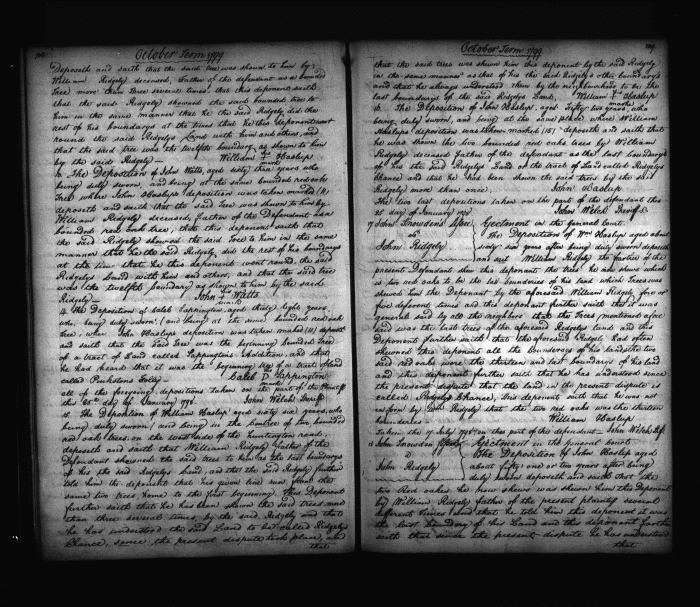 October Term 1799
Deposeth and saith that the said tree was shown to him by
William Ridgely deceased, Father of the defendant as a bounded
tree more than three several times, that this deponent saith
that the said Ridgely shewed the said bounded tree to
him in the same manner that he the said Ridgely did the
rest of his boundarys at the time that he this deponent went
round the said Ridgelys Land with him and others, and
that the said tree was the twelfth boundary, as shewn to him
by the said Ridgely — William Haslup
mark
The Deposition of John Watts, aged sixty two years who
being duly sworn, and being at the same bounded red oak
tree where John Haslups deposition was taken marked (11)
deposeth and saith that the said Tree was shewn to him by
William Ridgely deceased, father of the Defendant as a
bounded red oak tree, that this deponent saith that
the said Ridgely shewed the said Tree to him in the same
manner that he the said Ridgely, did the rest of his boundarys
at the time that he this deponent went round the said
Ridgelys Land with him and others, and that the said tree
was the twelfth boundary as shewn to him by the said
Ridgely — John Watts
14 The Deposition of Caleb Pappington, aged thirty eight years
who being duly sworn (and being at the same bounded red oak
tree, where John Haslups deposition was taken marked (11) deposeth
and saith that the said Tree was the beginning bounded Tree
of a tract of Land called Pappingtons Addition, and that
he had heard that it was the beginning tree of a tract of Land
called Pinkstons Folly — Caleb Pappington
mark
All of the foregoing depositions taken on the part of the Plaintiff
this 25th day of January 1798 John Welch Sheriff
15 The Deposition of William Haslup aged sixty six years, who
being duly sworn (and being at the two bounded
red oak trees on the west side of the Huntington road,
deposeth and saith that William Ridgely Father of the
Defendant shewed the said trees to him as the last boundarys
of his the said Ridgelys Land, and that the said Ridgely further
told him the deponent that his given line run from the
same two trees home to the first beginning, this Deponent
further saith that he has been shewn the said trees more
than three several times, by the said Ridgely and that
he has understood the said Land to be called Ridgelys
Chance, since the present dispute took place, and
that

October Term 1799
that the said trees was shewn him this deponent by the said Ridgely
in the same manner as that of his the said Ridgelys other boundarys
and that he always understood them by the neighbours to be the
last boundarys of the said Ridgelys Land, William Haslup
mark
16 The Deposition of John Haslup, aged Fifty two years, who
being duly sworn, and being at the same place where William
Haslups deposition was taken marked (15) deposeth and saith that
he was shewn the two bounded red oaks trees by William
Ridgely deceased Father of the defendant as the last boundarys
of his the said Ridgelys Land or the tract of Land called Ridgelys
Chance and that he had been shewn the said trees by the said
Ridgely more than once John Haslup
The two last depositions taken on the part of the defendant this
25 day of January 1798 John Welch Sheriff
17 John Snowdens Lessee
vs
John Ridgely
Ejectment in the general court
The Deposition of Wm Haslup aged about
sixty six years after being duly sworn deposeth
and saith William Ridgely the father of the
present Defendant shew this deponent the trees he now shews which
is two red oaks to be the last boundaries of his land which trees was
shewed him the Deponent by the aforesaid William Ridgely four or
five different times and this deponent further saith that it was
general said by all the neighbors that the Trees mentioned afore
said was the last trees of the aforesaid Ridgelys land and this
Deponent further saith that the aforesaid Ridgely had often
shewned this deponent all the boundarys of his land these two
said red oaks were the thirteen and last boundary of his land
and this deponent further saith that he has understood since
the present dispute that the land in the present dispute is
called Ridgelys Chance, this deponent saith that he was not
inform by Wm Ridgely that the two red oaks was the thirteen
boundaries William Haslup
Taken the 17 July 1798 on the part of the defendant John Welch Shff
18 John Snowden Lessee
vs
John Ridgely
Ejectment in the general court
The Deposition of John Haslup aged
about fifty one or two years after being
duly sworn deposeth and saith that the
two Red oakes he now shews was shewn him this Deponent
by William Ridgely father of the present plaintiff several
different times and that he told him this deponent it was
the last boundary of his Land and this deponent farther
saith that since the present dispute he has understood
that